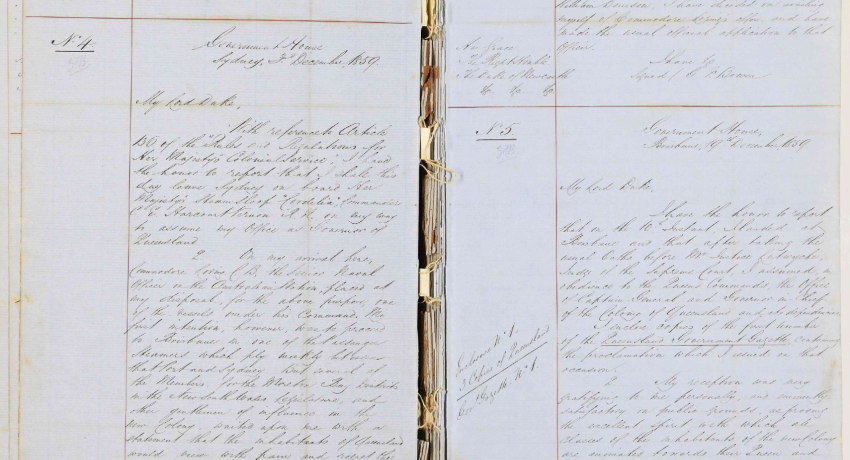 No. 4
Government House
Sydney, December, 1859.
My Lord Duke,
With reference to Article
130 of the "Rules and Regulations for
Her Majesty's Colonial Service", I have
the honor to report that I shall this
day leave Sydney on board Her
Majesty's Steam Sloop "Cordelia", Commander
C. E. Harcourt Vernon R.N. on my way
to assume my Office as Governor of
Queensland.
2. On my arrival here,
Commodore Loring C.B., the Senior Naval
Officer on the Australian Station, placed at
my disposal, for the above purpose, one
of the vessels under his Command. My
first intention, however, was to proceed
to Brisbane in one of the Passenger
Steamers which ply weekly between
that Port and Sydney. But several of
the Members for the Moreton Bay Districts
in the New South Wales Legislature, and
other gentlemen of influence in the
new Colony waited upon me with a
statement that the inhabitants of Queensland
would view with pain and regret the
I have decided on availing
myself of Commodore Loring's offer, and have
made the usual official application to that
Officer.
His Grace
The Right Honble
The Duke of Newcastle
&c &c &c
I have &c
Signed / G. F. Bowen
No. 5
Government House,
Brisbane, 19th December, 1859
My Lord Duke,
I have the honor to report
that on the 10th Instant, I landed at
Brisbane and that after taking the
usual Oaths before Mr Justice Lutwyche,
Judge of the Supreme Court, I assumed, in
obedience to the Queen's Commands, the Office
of Captain General and Governor in Chief
of the Colony of Queensland and its dependencies.
I enclose copies of the first number
of the Queensland Government Gazette containing
the proclamation which I issued on that
occasion.
Enclosure No. 1.
3 Copies of Queensland
Gov Gazette No. 1
2. My reception was very
gratifying to me personally, and eminently
satisfactory on public grounds, as proving
the excellent spirit with which all
classes of the inhabitants of the new Colony
are animated towards their Queen and